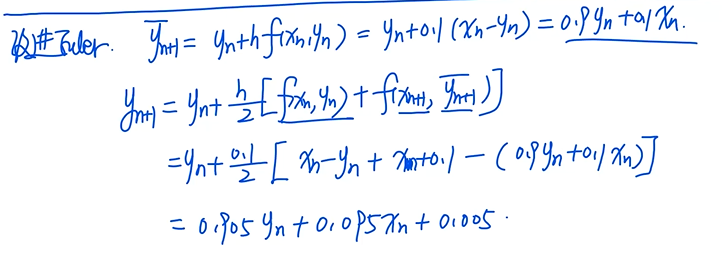 改进Euler. $\overline{y_{n+1}} = y_n + h f(x_n, y_n) = y_n + 0.1(x_n - y_n) = 0.9y_n + 0.1x_n.$
$y_{n+1} = y_n + \frac{h}{2}[f(x_n, y_n) + f(x_{n+1}, \overline{y_{n+1}})]$
$= y_n + \frac{0.1}{2}[x_n - y_n + x_n + 0.1 - (0.9y_n + 0.1x_n)]$
$= 0.905y_n + 0.095x_n + 0.005.$